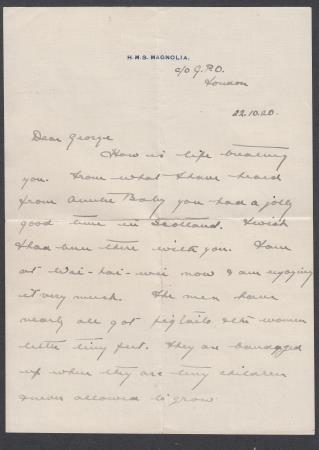 H.M.S. MAGNOLIA.
c/o G.P.O.
London
22.10.20.
Dear George
How is life treating
you. From what I have heard
from Auntie Baby you had a jolly
good time in Scotland. I wish
I had been there with you. I am
at Wai-hai-wei now & am enjoying
it very much. The men have
nearly all got pigtails & the women
little tiny feet. They are bandaged
up when they are tiny children
& never allowed to grow.